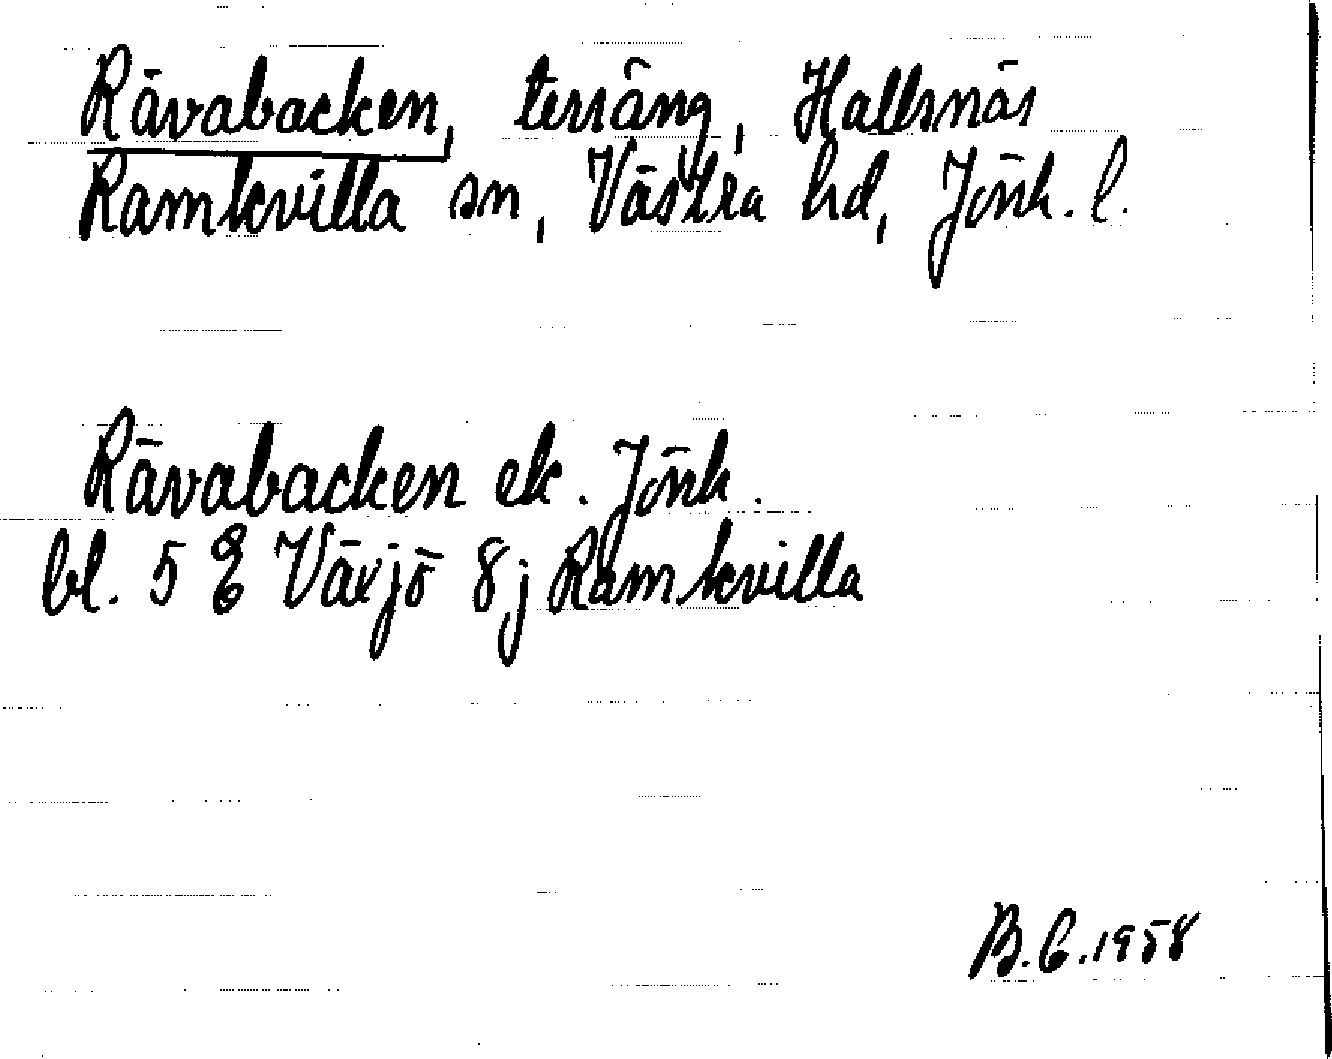 Rävabacken, terräng, Hallsnäs
Ramkvilla sn, Västra hd, Jönk. l.
Rävabacken ek. Jönk.
bl. 5 E Växjö 8j Ramkvilla
B.C. 1958